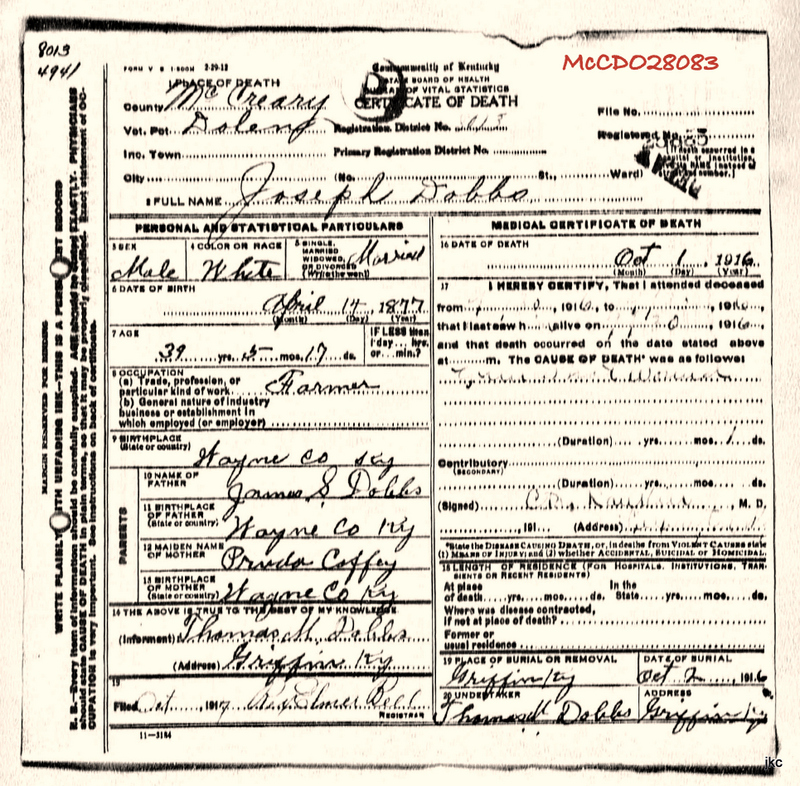 8013
4941
McCDO28083
FORM V S 1-500M 2-29-12
Commonwealth of Kentucky
STATE BOARD OF HEALTH
BUREAU OF VITAL STATISTICS
CERTIFICATE OF DEATH
1 PLACE OF DEATH
County McCreary
Vot. Pct
Inc. Town
City
Registration District No.
Primary Registration District No.
(No. St., Ward)
File No.
Registered No.
(If death occurred in a hospital or institution, give its NAME instead of street and number.)
2 FULL NAME Joseph Dobbs
PERSONAL AND STATISTICAL PARTICULARS
3 SEX
Male
4 COLOR OR RACE
White
5 SINGLE, MARRIED WIDOWED, OR DIVORCED (Write the word)
Married
6 DATE OF BIRTH
April 14, 1877
(Month) (Day) (Year)
7 AGE
39 yrs. 5 mos. 17 ds.
IF LESS than 1 day... hrs. or... min.?
8 OCCUPATION
(a) Trade, profession, or particular kind of work Farmer
(b) General nature of industry
business or establishment in
which employed (or employer)
9 BIRTHPLACE
(State or country)
Wayne Co Ky
PARENTS
10 NAME OF FATHER
James S Dobbs
11 BIRTHPLACE OF FATHER (State or country)
Wayne Co Ky
12 MAIDEN NAME OF MOTHER
Coffey
13 BIRTHPLACE OF MOTHER (State or country)
Wayne Co Ky
14 THE ABOVE IS TRUE TO THE BEST OF MY KNOWLEDGE
(Informant) Thomas M. Dobbs
(Address) Griffin Ky
15
Filed Oct , 191 Elmer Bell
REGISTRAR
11-3184
MEDICAL CERTIFICATE OF DEATH
16 DATE OF DEATH
Oct 1, 1916
(Month) (Day) (Year)
17 I HEREBY CERTIFY, That I attended deceased
from , 1916, to , 191
that I last saw h alive on , 1916
and that death occurred on the date stated above
at m. The CAUSE OF DEATH* was as follows:
(Duration) yrs. mos. 1 ds.
Contributory
(SECONDARY)
(Duration) yrs. mos. ds.
(Signed) , M. D.
, 191 (Address)
*State the DISEASE CAUSING DEATH, or, in deaths from VIOLENT CAUSES state
(1) MEANS OF INJURY; and (2) whether ACCIDENTAL, SUICIDAL or HOMICIDAL.
18 LENGTH OF RESIDENCE (FOR HOSPITALS, INSTITUTIONS, TRANSIENTS OR RECENT RESIDENTS)
At place of death yrs. mos. ds. In the State yrs. mos. ds.
Where was disease contracted,
if not at place of death?
Former or
usual residence
19 PLACE OF BURIAL OR REMOVAL
Griffin Ky
DATE OF BURIAL
Oct 2, 1916
20 UNDERTAKER
Thomas M Dobbs
ADDRESS
Griffin Ky
MARGIN RESERVED FOR BINDING
WRITE PLAINLY WITH UNFADING INK—THIS IS A PERMANENT RECORD
N. B.—Every item of information should be carefully supplied. AGE should be stated EXACTLY. PHYSICIANS
should state CAUSE OF DEATH in plain terms, so that it may be properly classified. Exact statement of OC-
CUPATION is very important. See instructions on back of certificate.
ikc